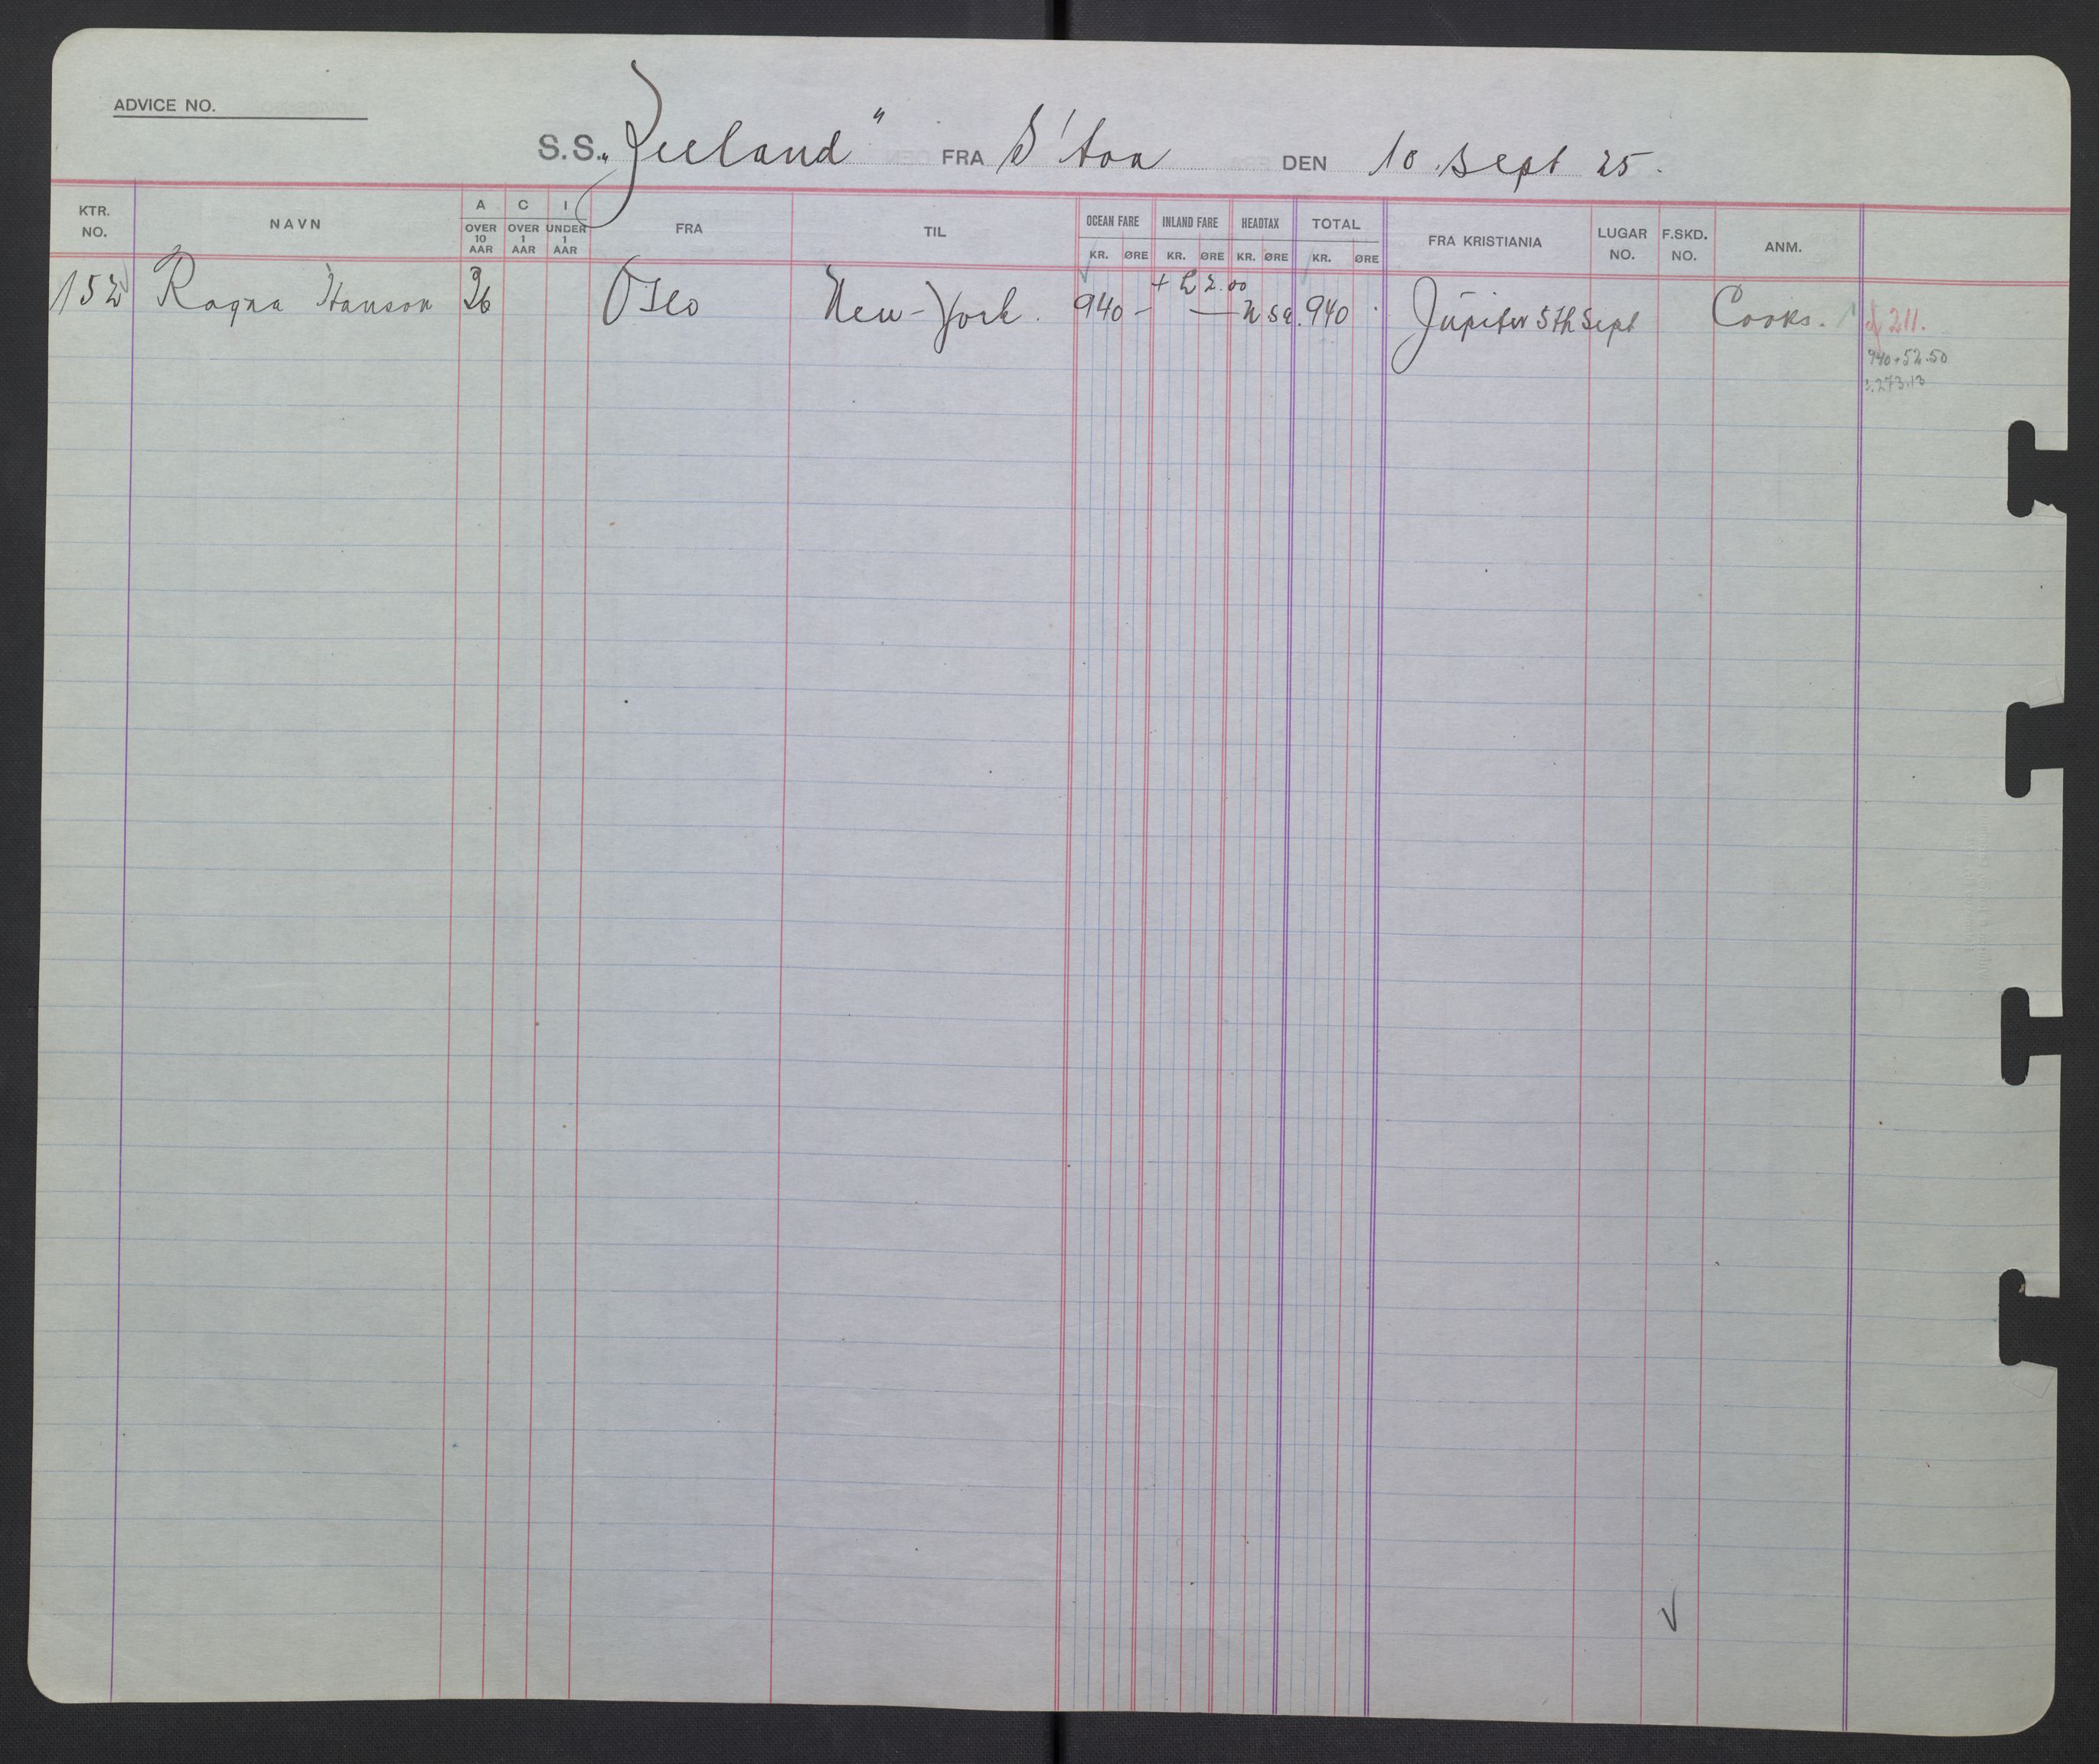 ADVICE NO.
S.S. „Zeeland" FRA S'ton DEN 10 Sept 25.
KTR. NO. NAVN A OVER 10 AAR C OVER 1 AAR I UNDER 1 AAR FRA TIL OCEAN FARE KR. ØRE INLAND FARE KR. ØRE HEADTAX KR. ØRE TOTAL KR. ØRE FRA KRISTIANIA LUGAR NO. F.SKD. NO. ANM.
+ £ 2.00
152 Ragna Hanson 26 Oslo New-York. 940 - — USA. 940 Jupiter 5th Sept Cooks. 211.
940+52.50
273.13